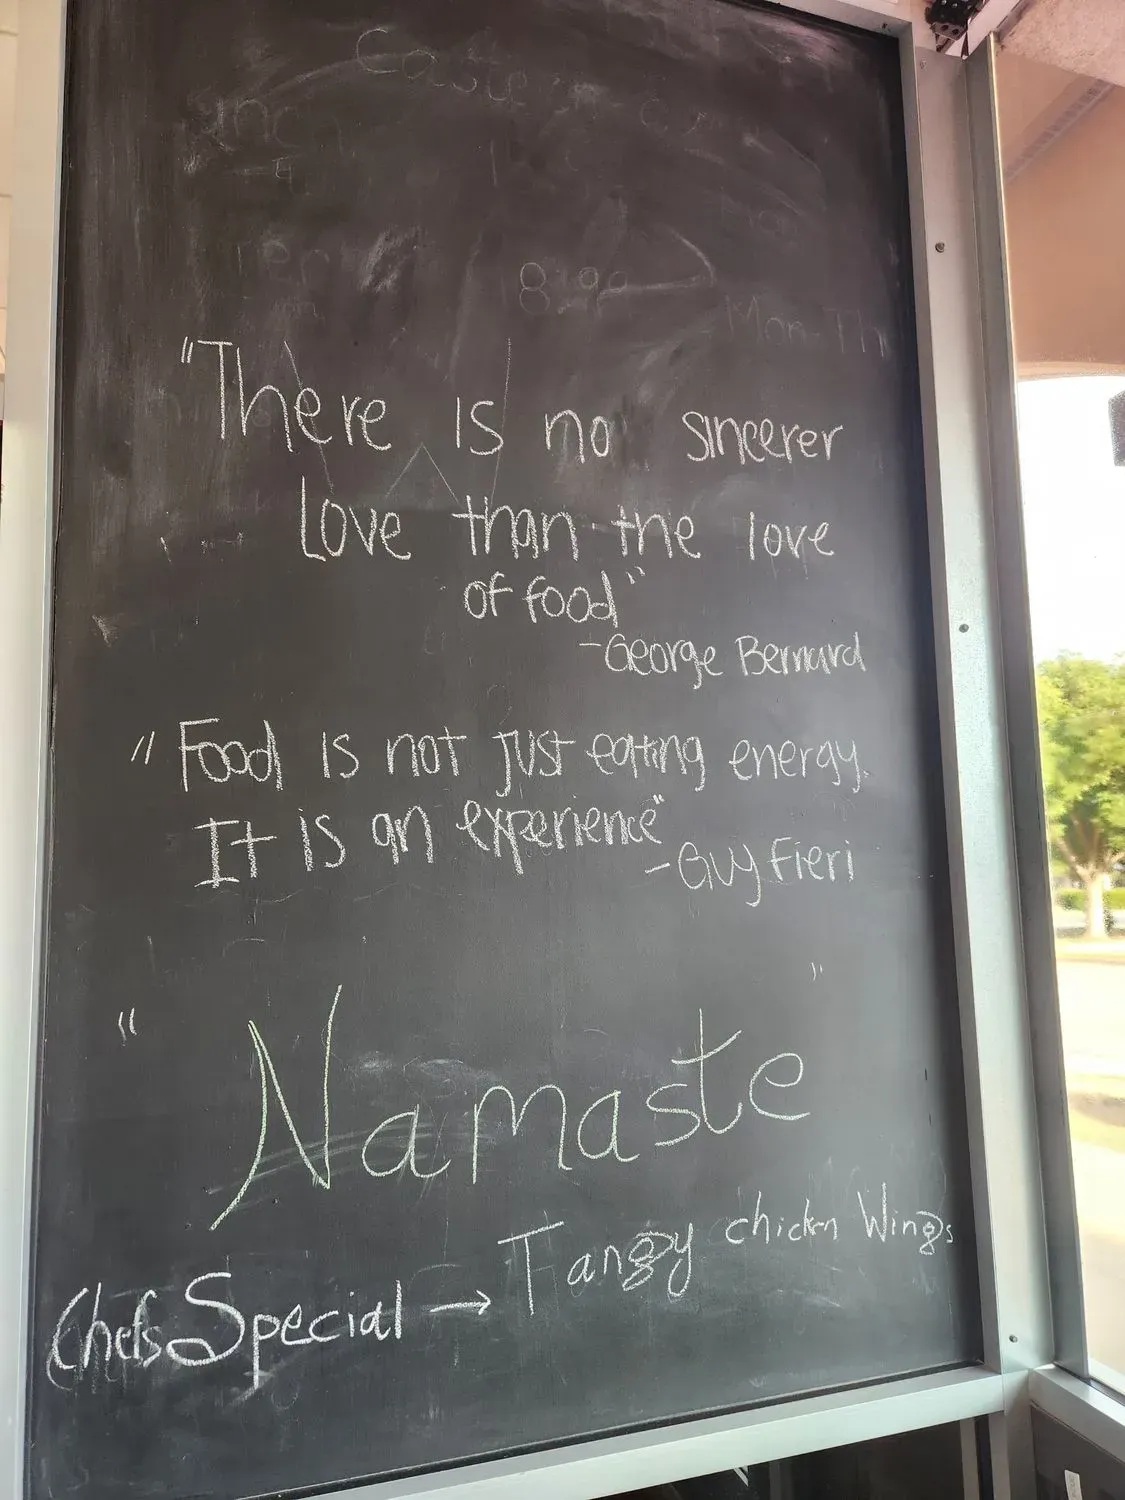 8.99
Mon-Th
"There is no sincerer
love than the love
of food"
-George Bernard
"Food is not just eating energy.
It is an experience"
-Guy Fieri
"Namaste"
Chefs Special → Tangy chicken Wings